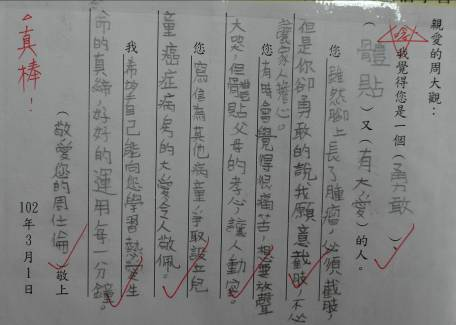 親愛的周大觀：
我覺得您是一個（勇敢）
（體貼）又（有大愛）的人。
您雖然腳上長了腫瘤，必須截肢，
但是你卻勇敢的說，我願意截肢，不必
讓家人擔心。
您有時會覺得很痛苦，想要放聲
大哭，但體貼父母的孝心，讓人動容。
您寫信為其他病童，爭取設立兒
童癌症病房的大愛令人敬佩。
我希望自己能向您學習熱愛生
命的真締，好好的運用每一分鐘。
（敬愛您的周仕倫）敬上
102年3月1日
真棒！